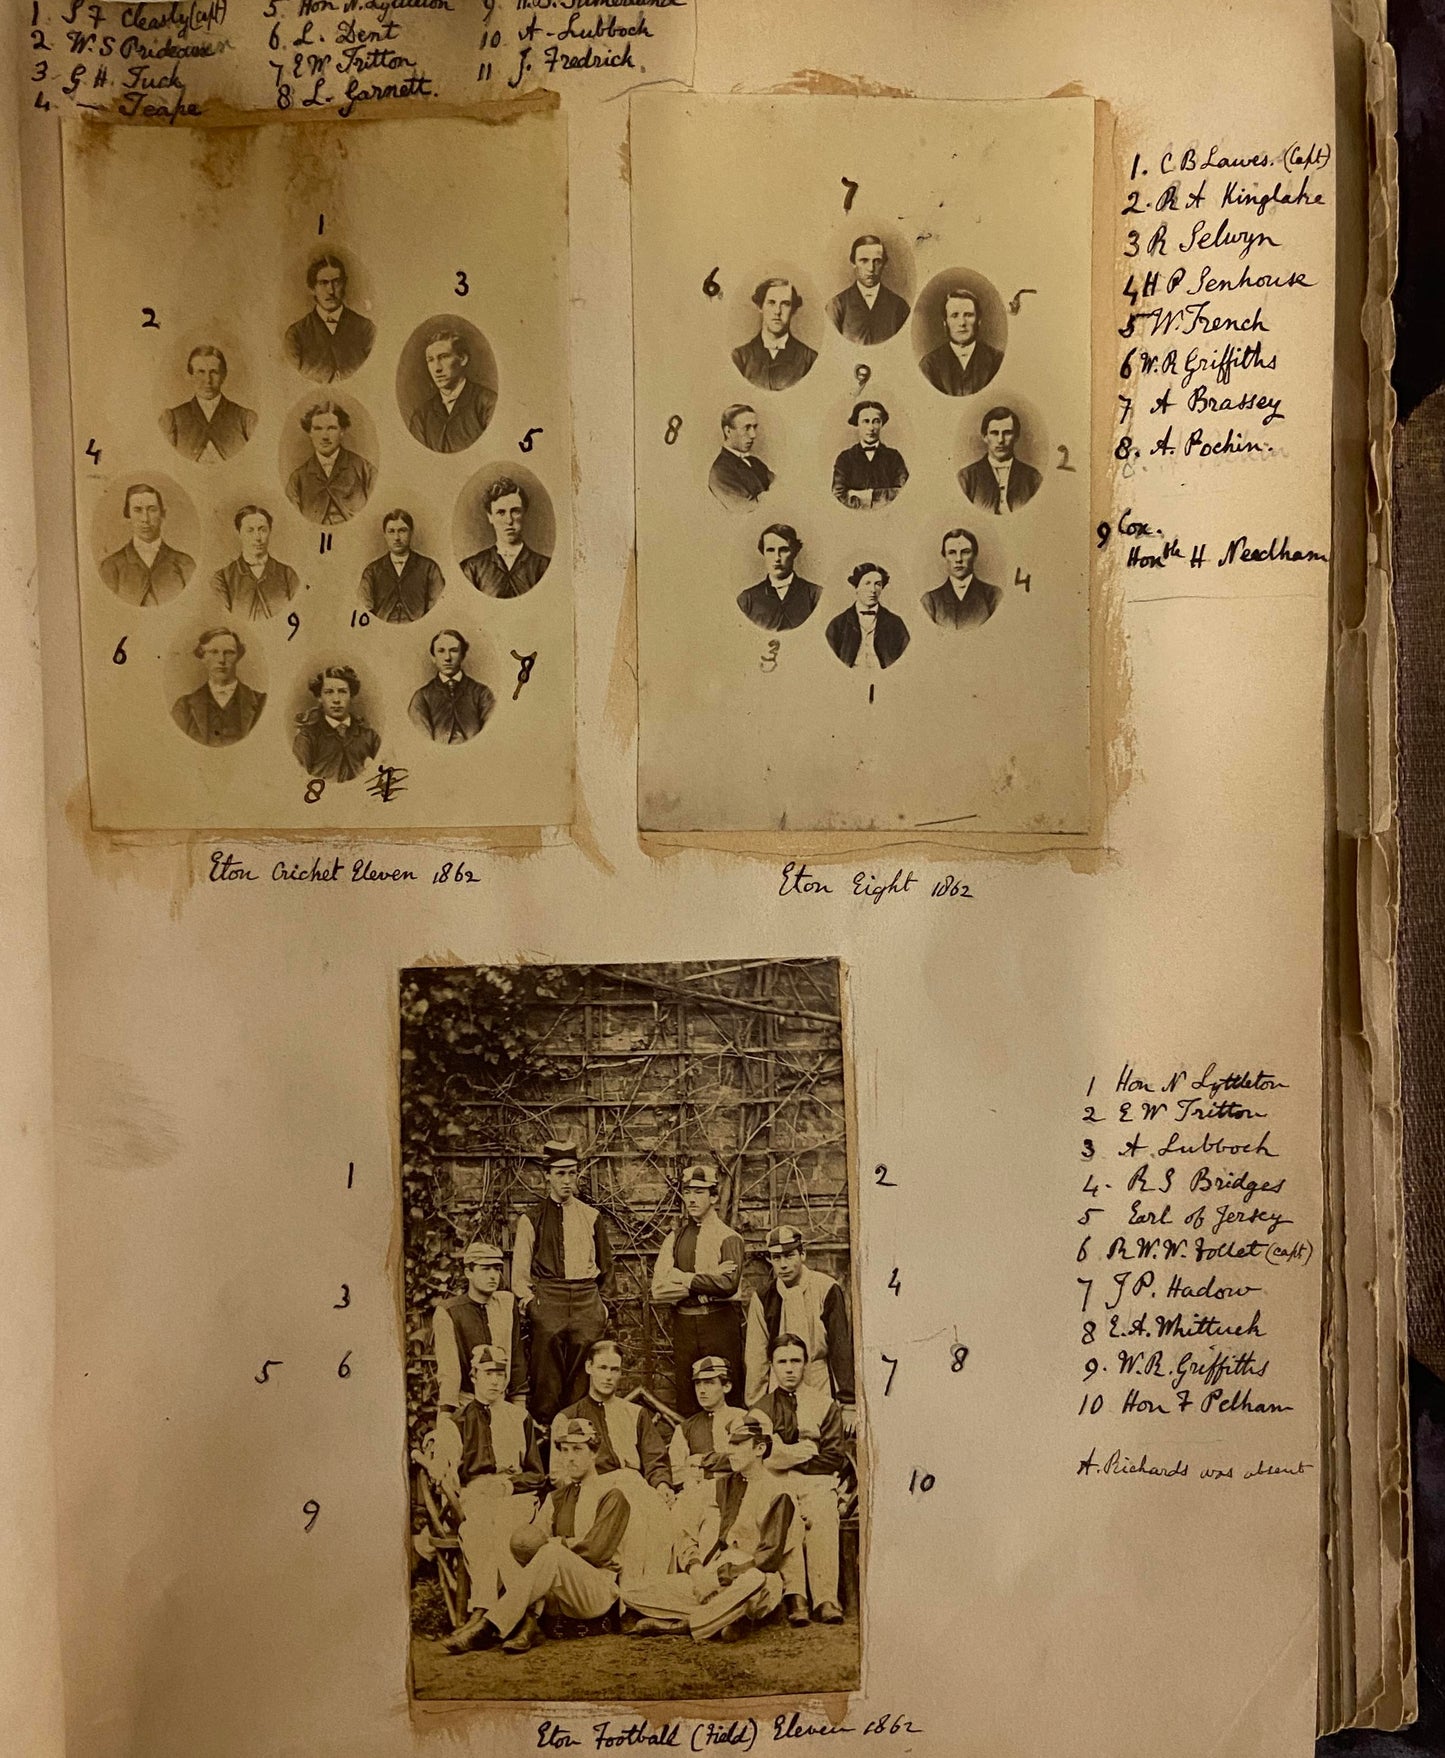 1. S F Cleasby (capt)
2 W. S Prideaux
3 G H. Tuck
4 — Teape
5. Hon N. Lyttleton
6. L. Dent
7 E W Tritton
8 L. Garnett.
9
10. A. Lubbock
11 J. Fredrick.
1
2
3
4
5
11
9
10
6
7
8
Eton Cricket Eleven 1862
7
6
5
9
8
2
4
3
1
Eton Eight 1862
1. C B Lawes. (Capt)
2. R A Kinglake
3 R Selwyn
4 H P Senhouse
5 W. French
6 W. R Griffiths
7 A Brassey
8. A. Pochin.
9 Cox.
Honble H Needham
1
2
3
4
5
6
7
8
9
10
1 Hon N Lyttleton
2 E W Tritton
3 A. Lubbock
4. R S Bridges
5 Earl of Jersey
6 R. W. W. Follet (capt)
7 J P. Hadow
8 E. A. Whittuck
9. W. R. Griffiths
10 Hon F Pelham
A. Richards was absent
Eton Football (Field) Eleven 1862